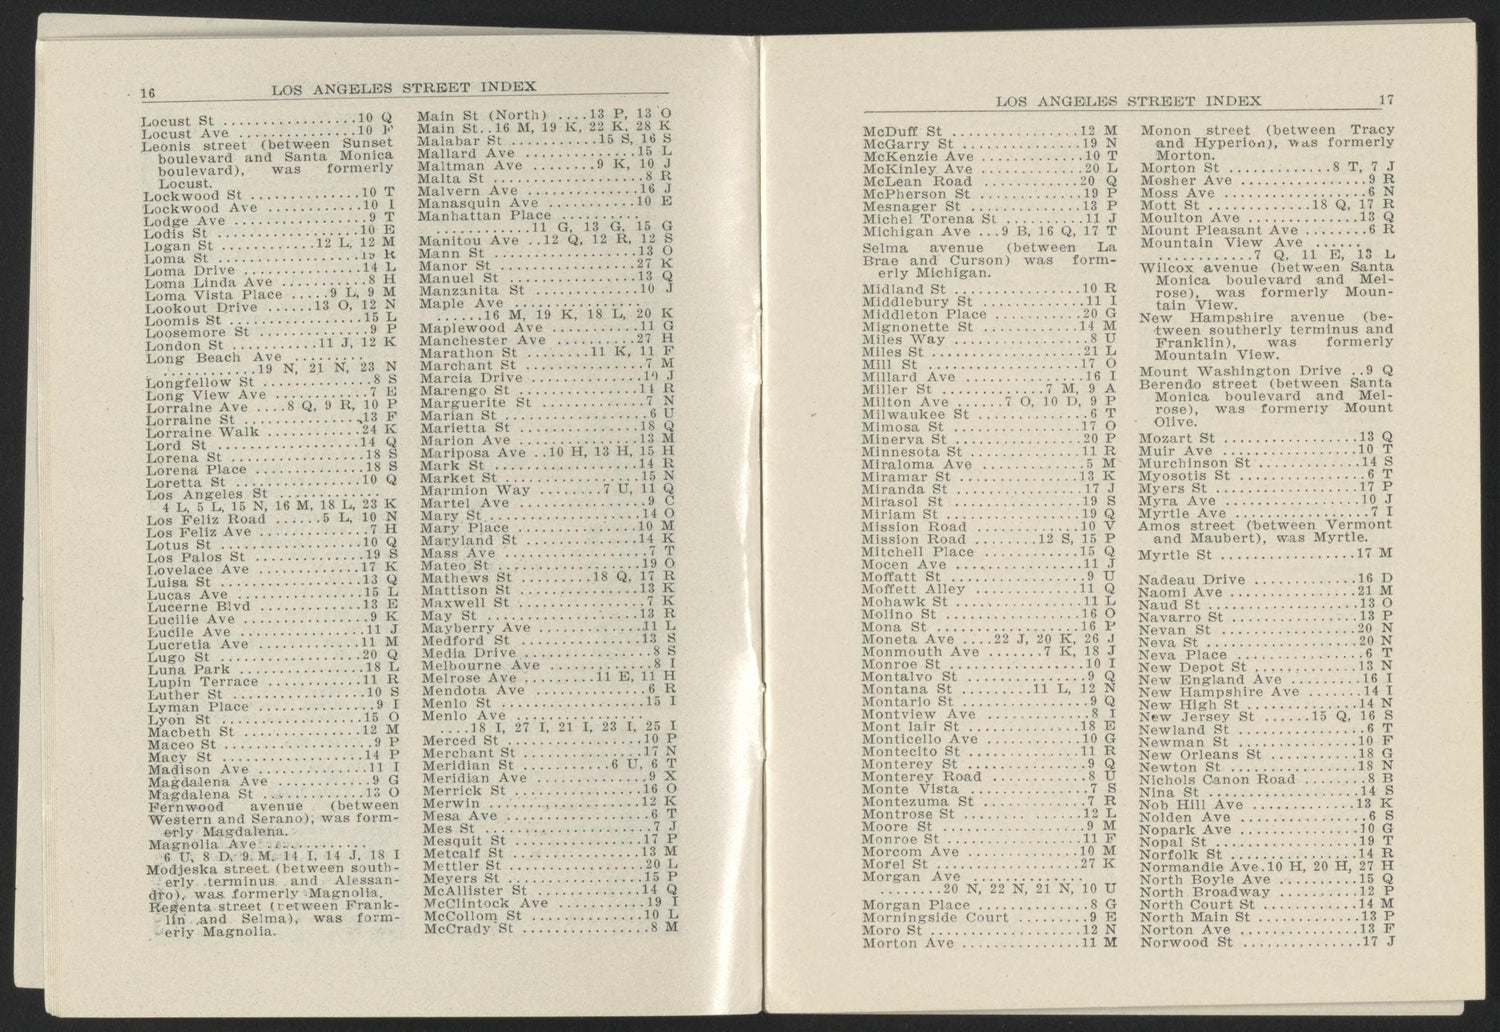 16
LOS ANGELES STREET INDEX
Locust St ................10 Q
Locust Ave ..............10 F
Leonis street (between Sunset
boulevard and Santa Monica
boulevard), was formerly
Locust.
Lockwood St .............10 T
Lockwood Ave ...........10 I
Lodge Ave ................9 T
Lodis St .................10 E
Logan St ...........12 L, 12 M
Loma St .................. R
Loma Drive ..............14 L
Loma Linda Ave ..........8 H
Loma Vista Place .....9 L, 9 M
Lookout Drive ......13 O, 12 N
Loomis St ................15 L
Loosemore St .............9 P
London St ..........11 J, 12 K
Long Beach Ave .........
...........19 N, 21 N, 23 N
Longfellow St .............8 S
Long View Ave ............7 E
Lorraine Ave ....8 Q, 9 R, 10 P
Lorraine St ..............13 F
Lorraine Walk ............24 K
Lord St ..................14 Q
Lorena St ................18 S
Lorena Place .............18 S
Loretta St ...............10 Q
Los Angeles St ............
4 L, 5 L, 15 N, 16 M, 18 L, 23 K
Los Feliz Road ......5 L, 10 N
Los Feliz Ave .............7 H
Lotus St .................10 Q
Los Palos St .............19 S
Lovelace Ave .............17 K
Luisa St .................13 Q
Lucas Ave ................15 L
Lucerne Blvd .............13 E
Lucilie Ave ...............9 K
Lucile Ave ...............11 J
Lucretia Ave .............11 M
Lugo St ..................20 Q
Luna Park ................18 L
Lupin Terrace ............11 R
Luther St ................10 S
Lyman Place ...............9 I
Lyon St ..................15 O
Macbeth St ...............12 M
Maceo St ..................9 P
Macy St ..................14 P
Madison Ave ..............11 I
Magdalena Ave ............9 G
Magdalena St .............13 O
Fernwood avenue (between
Western and Serano), was form-
erly Magdalena.
Magnolia Ave .............
6 U, 8 D, 9 M, 14 I, 14 J, 18 I
Modjeska street (between south-
erly terminus and Alessan-
dro), was formerly Magnolia.
Regenta street (between Frank-
lin and Selma), was form-
erly Magnolia.
Main St (North) ....13 P, 13 O
Main St..16 M, 19 K, 22 K, 28 K
Malabar St ...........15 S, 16 S
Mallard Ave ..............15 L
Maltman Ave ........9 K, 10 J
Malta St ..................8 R
Malvern Ave .............16 J
Manasquin Ave ...........10 E
Manhattan Place ..........
............11 G, 13 G, 15 G
Manitou Ave ..12 Q, 12 R, 12 S
Mann St ..................13 O
Manor St .................27 K
Manuel St ................13 Q
Manzanita St .............10 J
Maple Ave ................
......16 M, 19 K, 18 L, 20 K
Maplewood Ave ...........11 G
Manchester Ave ..........27 H
Marathon St ........11 K, 11 F
Marchant St ..............7 M
Marcia Drive .............10 J
Marengo St ...............14 R
Marguerite St .............7 N
Marian St .................6 U
Marietta St ..............18 Q
Marion Ave ...............13 M
Mariposa Ave ..10 H, 13 H, 15 H
Mark St ..................14 R
Market St ................15 N
Marmion Way ........7 U, 11 Q
Martel Ave ................9 C
Mary St ..................14 O
Mary Place ...............10 M
Maryland St ..............14 K
Mass Ave ..................7 T
Mateo St .................19 O
Mathews St .........18 Q, 17 R
Mattison St ..............13 K
Maxwell St ................7 K
May St ...................13 R
Mayberry Ave .............11 L
Medford St ...............13 S
Media Drive ...............8 S
Melbourne Ave ............8 I
Melrose Ave ........11 E, 11 H
Mendota Ave ..............6 R
Menlo St .................15 I
Menlo Ave ................
....18 I, 27 I, 21 I, 23 I, 25 I
Merced St ................10 P
Merchant St ..............17 N
Meridian St .........6 U, 6 T
Meridian Ave .............9 X
Merrick St ...............16 O
Merwin ...................12 K
Mesa Ave ..................6 T
Mes St ....................7 J
Mesquit St ...............17 P
Metcalf St ...............13 M
Mettler St ...............20 L
Meyers St ................15 P
McAllister St ............14 Q
McClintock Ave ..........19 I
McCollom St ..............10 L
McCrady St ................8 M
LOS ANGELES STREET INDEX
17
McDuff St ................12 M
McGarry St ...............19 N
McKenzie Ave .............10 T
McKinley Ave .............20 L
McLean Road ............20 Q
McPherson St .............19 P
Mesnager St ..............13 P
Michel Torena St ..........11 J
Michigan Ave ...9 B, 16 Q, 17 T
Selma avenue (between La
Brae and Curson) was form-
erly Michigan.
Midland St ...............10 R
Middlebury St ............11 I
Middleton Place ..........20 G
Mignonette St ............14 M
Miles Way .................8 U
Miles St .................21 L
Mill St ..................17 O
Millard Ave ..............16 I
Miller St ...........7 M, 9 A
Milton Ave ......7 O, 10 D, 9 P
Milwaukee St ..............6 T
Mimosa St ................17 O
Minerva St ...............20 P
Minnesota St .............11 R
Miraloma Ave ..............5 M
Miramar St ...............13 K
Miranda St ...............17 J
Mirasol St ...............19 S
Miriam St ................19 Q
Mission Road .............10 V
Mission Road ........12 S, 15 P
Mitchell Place ............15 Q
Mocen Ave ................11 J
Moffatt St ................9 U
Moffett Alley ............11 Q
Mohawk St ................11 L
Molino St ................16 O
Mona St ..................16 P
Moneta Ave ....22 J, 20 K, 26 J
Monmouth Ave .......7 K, 18 J
Monroe St ................10 I
Montalvo St ...............9 Q
Montana St .........11 L, 12 N
Montario St ...............9 Q
Montview Ave .............8 I
Mont lair St .............18 E
Monticello Ave ...........10 G
Montecito St .............11 R
Monterey St ...............9 Q
Monterey Road .............8 U
Monte Vista ...............7 S
Montezuma St ..............7 R
Montrose St ..............12 L
Moore St ..................9 M
Monroe St ................11 F
Morcom Ave ...............10 M
Morel St .................27 K
Morgan Ave ..............
........20 N, 22 N, 21 N, 10 U
Morgan Place ..............8 G
Morningside Court .........9 E
Moro St ..................12 N
Morton Ave ...............11 M
Monon street (between Tracy
and Hyperion), was formerly
Morton.
Morton St .............8 T, 7 J
Mosher Ave ................9 R
Moss Ave ..................6 N
Mott St .............18 Q, 17 R
Moulton Ave ..............13 Q
Mount Pleasant Ave ........6 R
Mountain View Ave ......
............7 Q, 11 E, 13 L
Wilcox avenue (between Santa
Monica boulevard and Mel-
rose), was formerly Moun-
tain View.
New Hampshire avenue (be-
tween southerly terminus and
Franklin), was formerly
Mountain View.
Mount Washington Drive ..9 Q
Berendo street (between Santa
Monica boulevard and Mel-
rose), was formerly Mount
Olive.
Mozart St ................13 Q
Muir Ave .................10 T
Murchinson St ............14 S
Myosotis St ...............6 T
Myers St .................17 P
Myra Ave .................10 J
Myrtle Ave ................7 I
Amos street (between Vermont
and Maubert), was Myrtle.
Myrtle St ................17 M
Nadeau Drive .............16 D
Naomi Ave ................21 M
Naud St ..................13 O
Navarro St ...............13 P
Nevan St .................20 N
Neva St ..................20 N
Neva Place ................6 T
New Depot St .............13 N
New England Ave ..........16 I
New Hampshire Ave .......14 I
New High St ..............14 N
New Jersey St ......15 Q, 16 S
Newland St ................6 T
Newman St ................10 F
New Orleans St ...........18 G
Newton St ................18 N
Nichols Canon Road ........8 B
Nina St ..................14 S
Nob Hill Ave .............13 K
Nolden Ave ................6 S
Nopark Ave ...............10 G
Nopal St .................19 T
Norfolk St ...............14 R
Normandie Ave.10 H, 20 H, 27 H
North Boyle Ave ..........15 Q
North Broadway ...........12 P
North Court St ...........14 M
North Main St ............13 P
Norton Ave ...............13 F
Norwood St ...............17 J